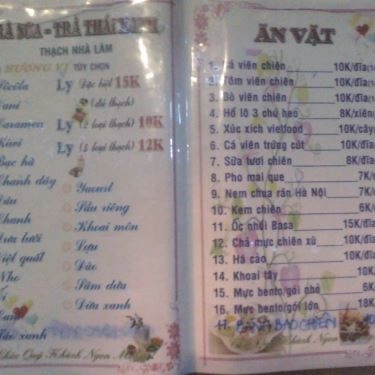 TRÀ SỮA = TRÀ THÁI XANH
THẠCH NHÀ LÀM
HƯƠNG VỊ TÙY CHỌN
Ly Đặc biệt 15K
(đủ thạch)
Ly (2 loại thạch) 10K
Ly (3 loại thạch) 12K
Bạc hà
Chanh dây
Dâu
Chanh
Dưa lưới
Việt quất
Nho
Táo xanh
Yaourt
Sầu riêng
Khoai môn
Lựu
Đào
Sâm dứa
Dừa xanh
Kính Chào Quý Khách Ngon Miệng
ĂN VẶT
1. Cá viên chiên 10K/đĩa
2. Tôm viên chiên 10K/đĩa
3. Bò viên chiên 10K/đĩa
4. Hồ lô 3 chú heo 8K/xiên
5. Xúc xích vietfood 10K/cây
6. Cá viên trứng cút 10K/đĩa
7. Sữa tươi chiên 8K/đĩa
8. Pho mai que 7K/
9. Nem chua rán Hà Nội 7K/
10. Kem chiên 6K/
11. Ốc nhồi Basa 15K/đĩa
12. Chả mực chiên xù 10K/đĩa
13. Há cảo 10K/đĩa
14. Khoai tây 10K/đĩa
15. Mực bento/gói nhỏ
16. Mực bento/gói lớn 18K
17. BÁNH BAO CHIÊN
Khánh Ngon